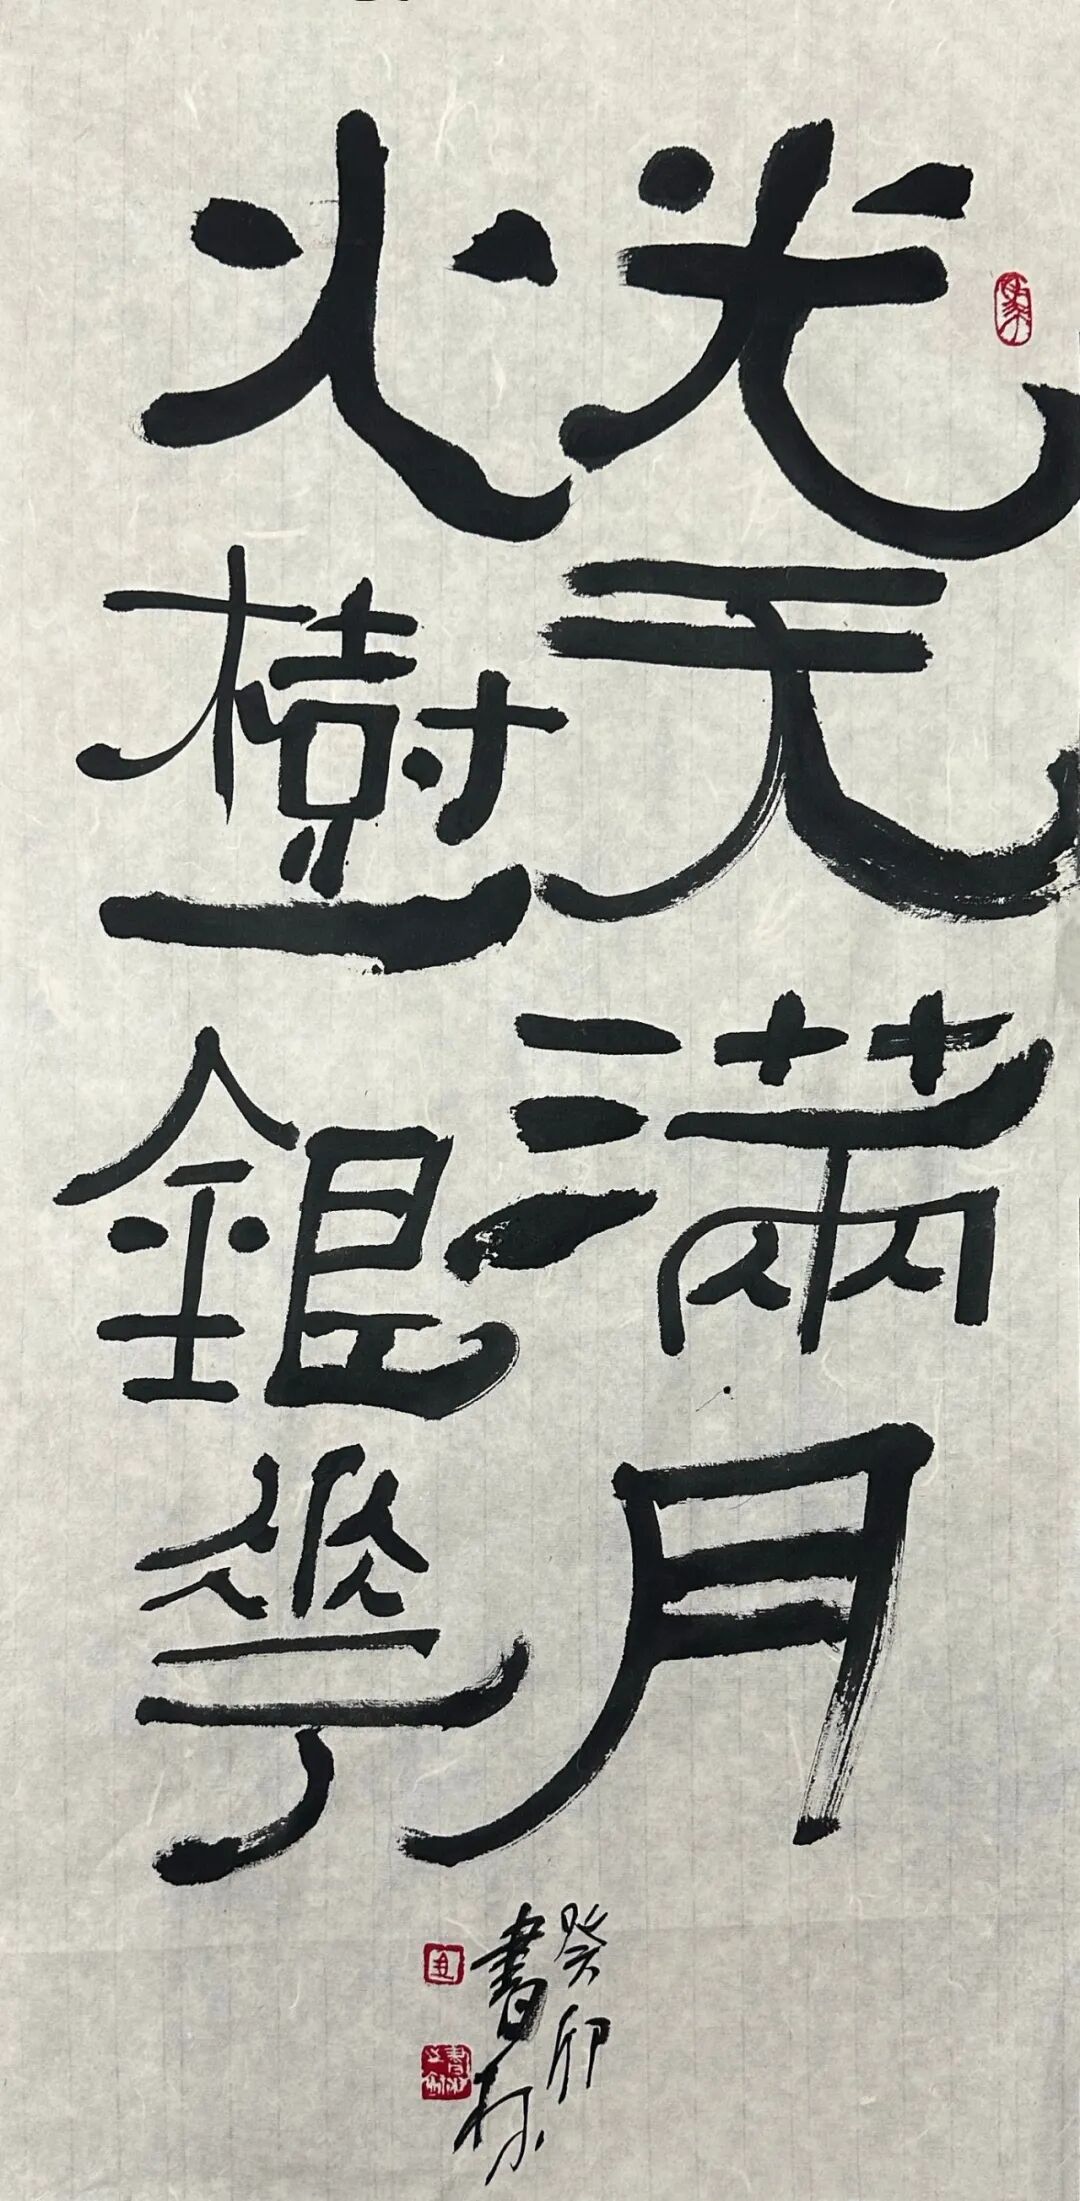 光天满月
火樹銀花
癸卯
書林